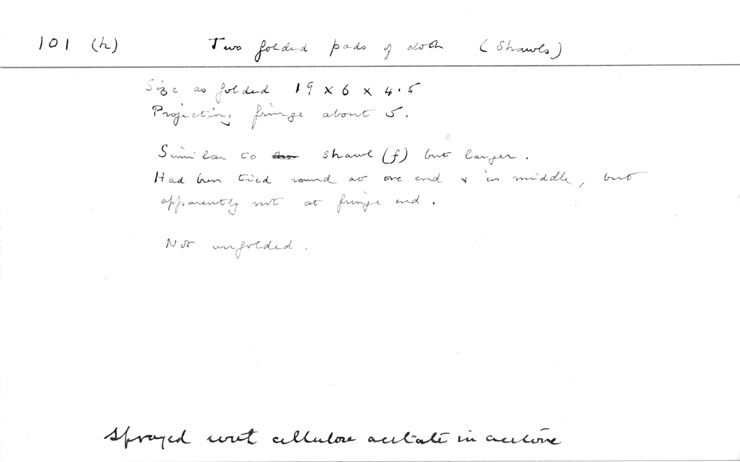 101 (h) Two folded pads of cloth (Shawls)
Size as folded 19 x 6 x 4.5
Projecting fringe about 5.
Similar to shawl (f) but larger.
Had been tied round at one end & in middle, but
apparently not at fringe end.
Not unfolded.
Sprayed with cellulose acetate in acetone